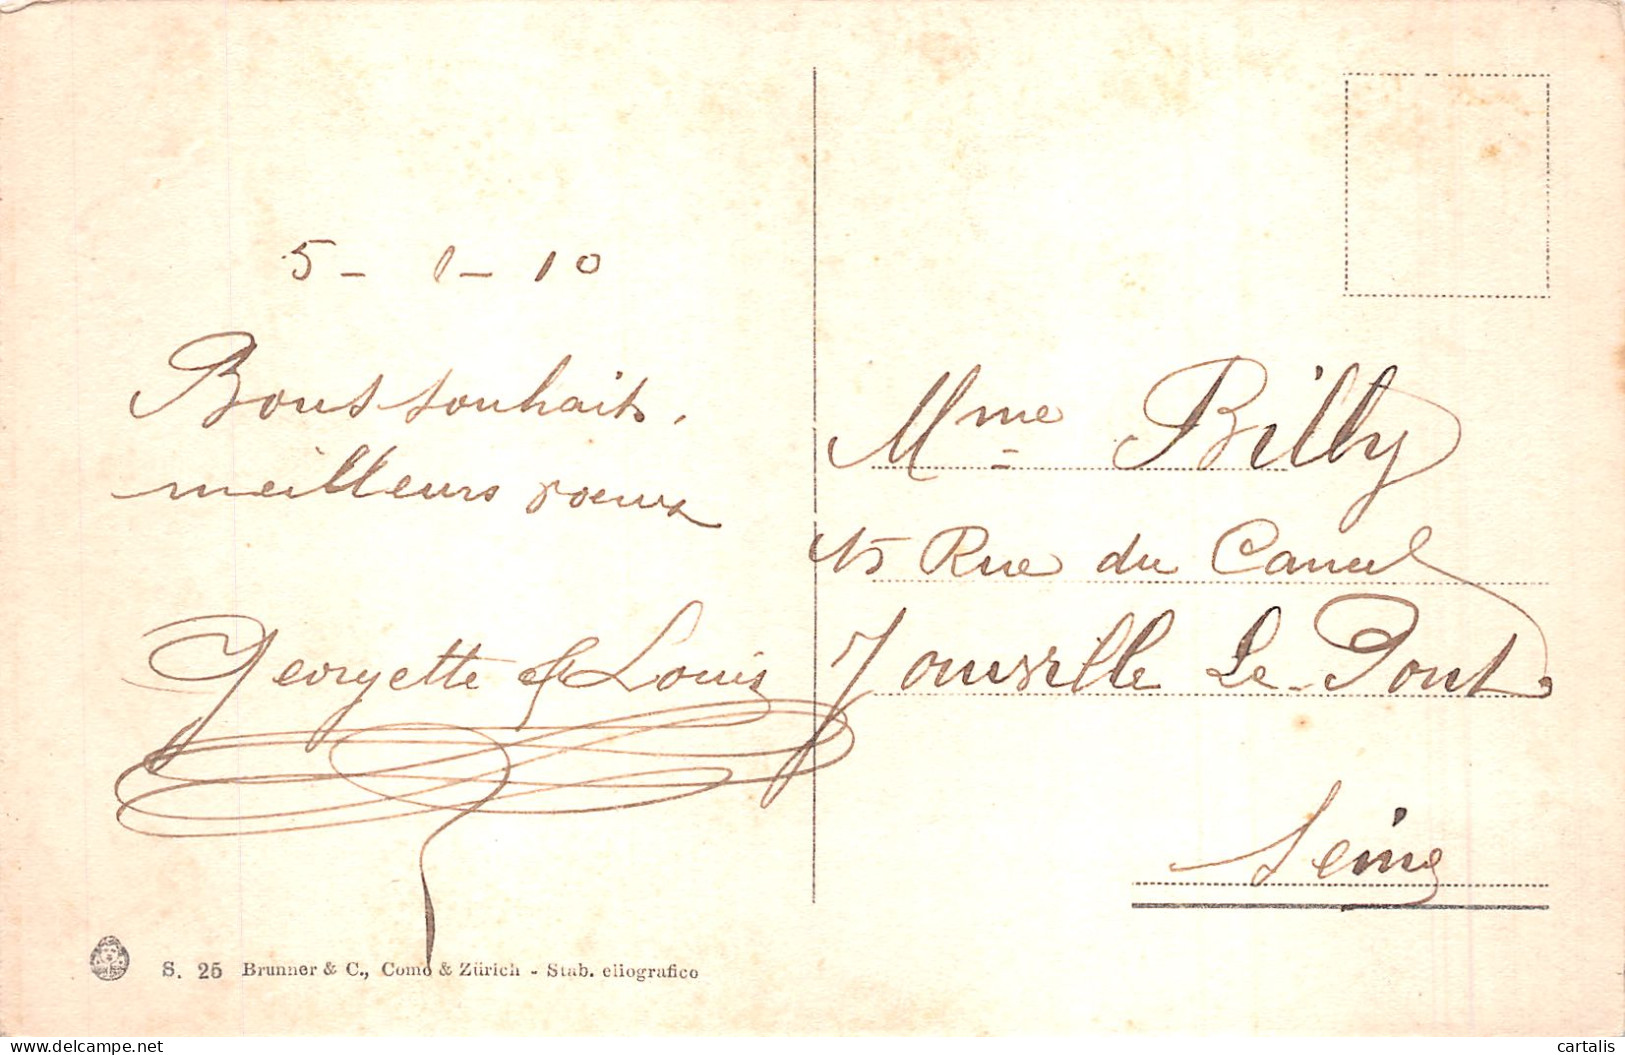 5 - 1 - 10
Bons souhaits.
meilleurs voeux
Georgette & Louis
Mme Billy
15 Rue du Canal
Joinville Le Pont
Seine
S. 25 Brunner & C., Como & Zürich - Stab. eliografico
delcampe.net
cartalis